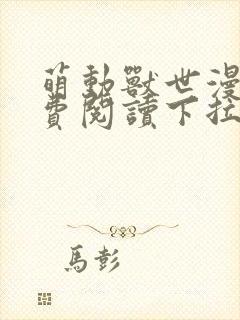 萌動獸世漫
費閱讀下拉
馬彭